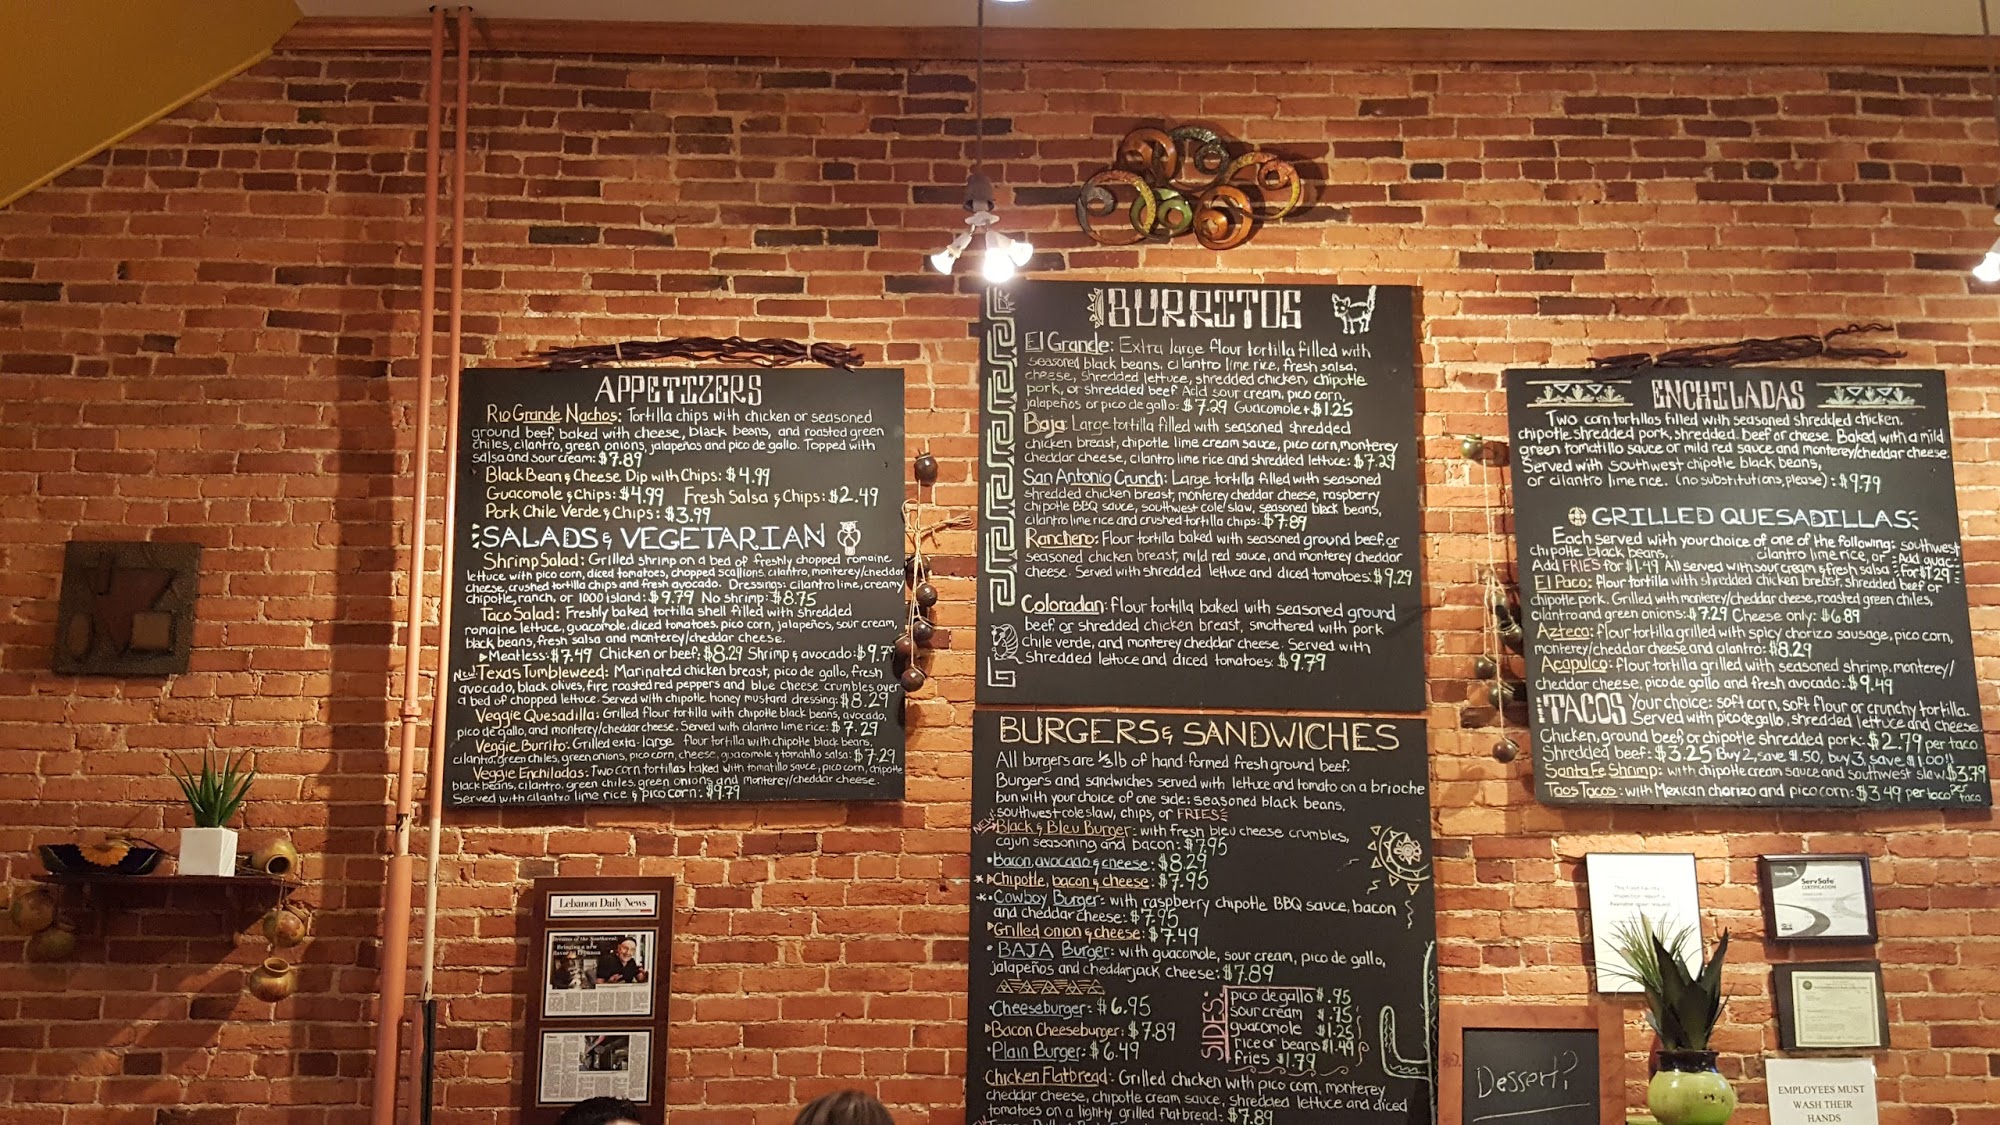 APPETIZERS
Rio Grande Nachos: Tortilla chips with chicken or seasoned
ground beef, baked with cheese, black beans, and roasted green
chiles, cilantro, green onions, jalapeños and pico de gallo. Topped with
salsa and sour cream: $7.89
Black Bean & Cheese Dip with Chips: $4.99
Guacomole & Chips: $4.99 Fresh Salsa & Chips: $2.49
Pork Chile Verde & Chips: $3.99
SALADS & VEGETARIAN
Shrimp Salad: Grilled shrimp on a bed of freshly chopped romaine
lettuce with pico corn, diced tomatoes, chopped scallions, cilantro, monterey/cheddar
cheese, crushed tortilla chips and fresh avocado. Dressings: cilantro lime, creamy
chipotle, ranch, or 1000 island: $9.79 No shrimp: $8.75
Taco Salad: Freshly baked tortilla shell filled with shredded
romaine lettuce, guacomole, diced tomatoes, pico corn, jalapeños, sour cream,
black beans, fresh salsa and monterey/cheddar cheese.
Meatless: $7.49 Chicken or beef: $8.29 Shrimp & avocado: $9.79
New! Texas Tumbleweed: Marinated chicken breast, pico de gallo, fresh
avocado, black olives, fire roasted red peppers and blue cheese crumbles over
a bed of chopped lettuce. Served with chipotle honey mustard dressing: $8.29
Veggie Quesadilla: Grilled flour tortilla with chipotle black beans, avocado,
pico de gallo, and monterey/cheddar cheese. Served with cilantro lime rice: $7.29
Veggie Burrito: Grilled exta-large flour tortilla with chipotle black beans,
cilantro, green chiles, green onions, pico corn, cheese, guacomole & tomatillo salsa: $7.29
Veggie Enchiladas: Two corn tortillas baked with tomatillo sauce, pico corn, chipotle
black beans, cilantro, green chiles, green onions and monterey/cheddar cheese.
Served with cilantro lime rice & pico corn: $9.79
BURRITOS
El Grande: Extra large flour tortilla filled with
seasoned black beans, cilantro lime rice, fresh salsa,
cheese, shredded lettuce, shredded chicken, chipotle
pork, or shredded beef. Add sour cream, pico corn,
jalapeños or pico de gallo: $7.29 Guacomole + $1.25
Baja: Large tortilla filled with seasoned shredded
chicken breast, chipotle lime cream sauce, pico corn, monterey
cheddar cheese, cilantro lime rice and shredded lettuce: $7.29
San Antonio Crunch: Large tortilla filled with seasoned
shredded chicken breast, monterey cheddar cheese, raspberry
chipotle BBQ sauce, southwest cole slaw, seasoned black beans,
cilantro lime rice and crushed tortilla chips: $7.89
Ranchero: Flour tortilla baked with seasoned ground beef or
seasoned chicken breast, mild red sauce, and monterey cheddar
cheese. Served with shredded lettuce and diced tomatoes: $9.29
Coloradan: flour tortilla baked with seasoned ground
beef or shredded chicken breast, smothered with pork
chile verde, and monterey cheddar cheese. Served with
shredded lettuce and diced tomatoes: $9.79
BURGERS & SANDWICHES
All burgers are 1/3 lb of hand-formed fresh ground beef.
Burgers and sandwiches served with lettuce and tomato on a brioche
bun with your choice of one side: seasoned black beans,
southwest coleslaw, chips, or FRIES
NEW Black & Bleu Burger: with fresh bleu cheese crumbles,
cajun seasoning and bacon: $7.95
Bacon, avocado & cheese: $8.29
Chipotle, bacon & cheese: $7.95
Cowboy Burger: with raspberry chipotle BBQ sauce, bacon
and cheddar cheese: $7.95
Grilled onion & cheese: $7.49
BAJA Burger: with guacomole, sour cream, pico de gallo,
jalapeños and cheddarjack cheese: $7.89
Cheeseburger: $6.95
Bacon Cheeseburger: $7.89
Plain Burger: $6.49
SIDES:
pico de gallo $.95
sour cream $.75
guacomole $1.25
rice or beans $1.49
fries $1.79
Chicken Flatbread: Grilled chicken with pico corn, monterey
cheddar cheese, chipotle cream sauce, shredded lettuce and diced
tomatoes on a lightly grilled flatbread: $7.89
ENCHILADAS
Two corn tortillas filled with seasoned shredded chicken,
chipotle shredded pork, shredded beef or cheese. Baked with a mild
green tomatillo sauce or mild red sauce and monterey/cheddar cheese.
Served with southwest chipotle black beans,
or cilantro lime rice. (no substitutions, please): $9.79
GRILLED QUESADILLAS
Each served with your choice of one of the following: southwest
chipotle black beans, cilantro lime rice, or
Add FRIES for $1.49 All served with sour cream & fresh salsa Add guac for $1.29
El Paco: flour tortilla with shredded chicken breast, shredded beef or
chipotle pork. Grilled with monterey/cheddar cheese, roasted green chiles,
cilantro and green onions: $7.29 Cheese only: $6.89
Azteca: flour tortilla grilled with spicy chorizo sausage, pico corn,
monterey/cheddar cheese and cilantro: $8.29
Acapulco: flour tortilla grilled with seasoned shrimp, monterey/
cheddar cheese, pico de gallo and fresh avocado: $9.49
TACOS Your choice: soft corn, soft flour or crunchy tortilla.
Served with pico de gallo, shredded lettuce and cheese.
Chicken, ground beef, or chipotle shredded pork: $2.79 per taco
Shredded beef: $3.25 Buy 2, save $.50, buy 3, save $1.00!!
Santa Fe Shrimp: with chipotle cream sauce and southwest slaw $3.79
per taco
Taos Tacos: with Mexican chorizo and pico corn: $3.49 per taco
Lebanon Daily News
Dreams of the Southwest:
Bringing a new
flavor to Lebanon
Dessert?
ServSafe
CERTIFICATION
EMPLOYEES MUST
WASH THEIR
HANDS